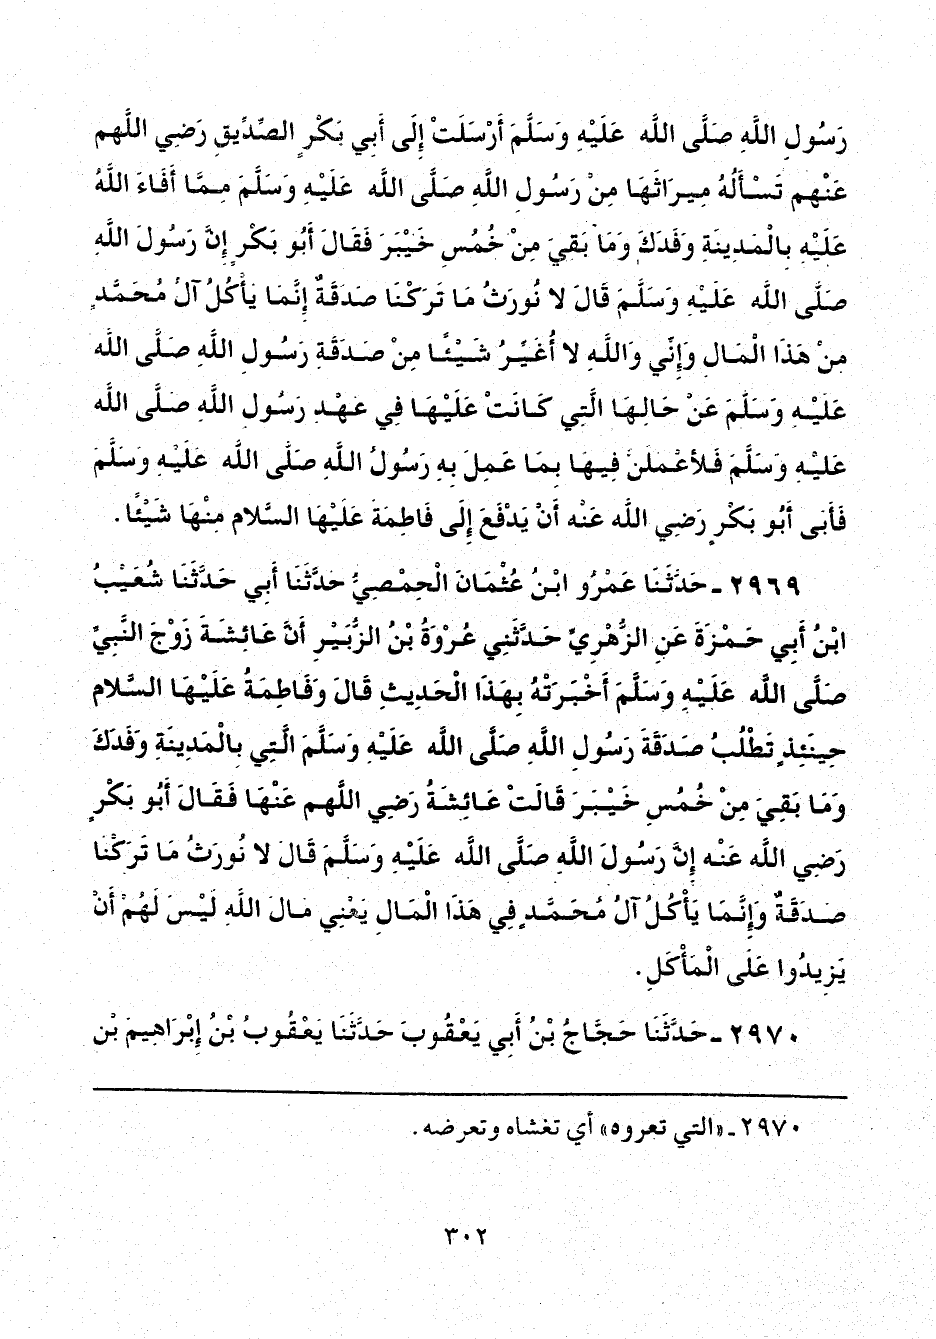 رَسُولِ اللَّهِ صَلَّى اللَّه عَلَيْهِ وَسَلَّمَ أَرْسَلَتْ إِلَى أَبِي بَكْرٍ الصِّدِّيقِ رَضِي اللَّهم
عَنْهم تَسْأَلُهُ مِيرَاثَهَا مِنْ رَسُولِ اللَّهِ صَلَّى اللَّه عَلَيْهِ وَسَلَّمَ مِمَّا أَفَاءَ اللَّهُ
عَلَيْهِ بِالْمَدِينَةِ وَفَدَكَ وَمَا بَقِيَ مِنْ خُمُسِ خَيْبَرَ فَقَالَ أَبُو بَكْرٍ إِنَّ رَسُولَ اللَّهِ
صَلَّى اللَّه عَلَيْهِ وَسَلَّمَ قَالَ لا نُورَثُ مَا تَرَكْنَا صَدَقَةٌ إِنَّمَا يَأْكُلُ آلُ مُحَمَّدٍ
مِنْ هَذَا الْمَالِ وَإِنِّي وَاللَّهِ لا أُغَيِّرُ شَيْئًا مِنْ صَدَقَةِ رَسُولِ اللَّهِ صَلَّى اللَّه
عَلَيْهِ وَسَلَّمَ عَنْ حَالِهَا الَّتِي كَانَتْ عَلَيْهَا فِي عَهْدِ رَسُولِ اللَّهِ صَلَّى اللَّه
عَلَيْهِ وَسَلَّمَ فَلأَعْمَلَنَّ فِيهَا بِمَا عَمِلَ بِهِ رَسُولُ اللَّهِ صَلَّى اللَّه عَلَيْهِ وَسَلَّمَ
فَأَبَى أَبُو بَكْرٍ رَضِي اللَّه عَنْه أَنْ يَدْفَعَ إِلَى فَاطِمَةَ عَلَيْهَا السَّلام مِنْهَا شَيْئًا.
٢٩٦٩ - حَدَّثَنَا عَمْرُو ابْنُ عُثْمَانَ الْحِمْصِيُّ حَدَّثَنَا أَبِي حَدَّثَنَا شُعَيْبُ
ابْنُ أَبِي حَمْزَةَ عَنِ الزُّهْرِيِّ حَدَّثَنِي عُرْوَةُ بْنُ الزُّبَيْرِ أَنَّ عَائِشَةَ زَوْجَ النَّبِيِّ
صَلَّى اللَّه عَلَيْهِ وَسَلَّمَ أَخْبَرَتْهُ بِهَذَا الْحَدِيثِ قَالَ وَفَاطِمَةُ عَلَيْهَا السَّلام
حِينَئِذٍ تَطْلُبُ صَدَقَةَ رَسُولِ اللَّهِ صَلَّى اللَّه عَلَيْهِ وَسَلَّمَ الَّتِي بِالْمَدِينَةِ وَفَدَكَ
وَمَا بَقِيَ مِنْ خُمُسِ خَيْبَرَ قَالَتْ عَائِشَةُ رَضِي اللَّهم عَنْهَا فَقَالَ أَبُو بَكْرٍ
رَضِي اللَّه عَنْه إِنَّ رَسُولَ اللَّهِ صَلَّى اللَّه عَلَيْهِ وَسَلَّمَ قَالَ لا نُورَثُ مَا تَرَكْنَا
صَدَقَةٌ وَإِنَّمَا يَأْكُلُ آلُ مُحَمَّدٍ فِي هَذَا الْمَالِ يَعْنِي مَالَ اللَّهِ لَيْسَ لَهُمْ أَنْ
يَزِيدُوا عَلَى الْمَأْكَلِ.
٢٩٧٠ - حَدَّثَنَا حَجَّاجُ بْنُ أَبِي يَعْقُوبَ حَدَّثَنَا يَعْقُوبُ بْنُ إِبْرَاهِيمَ بْنِ
٢٩٧٠ - «التي تعروه» أي تغشاه وتعرضه.
٣٠٢